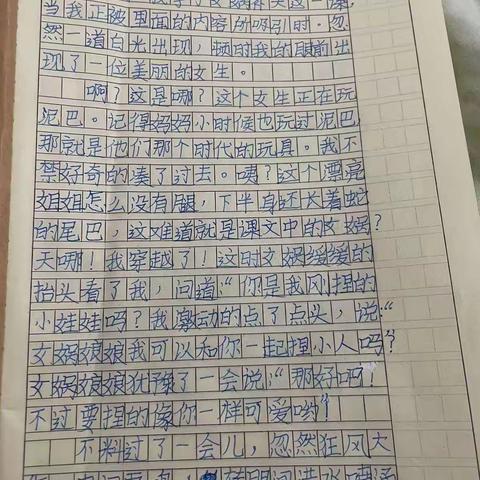 女娲补天这一课,
当我正被里面的内容所吸引时。忽
然一道白光出现,顿时我的眼前出
现了一位美丽的女生。
啊?这是哪?这个女生正在玩
泥巴。记得妈妈小时候也玩过泥巴
那就是他们那个时代的玩具。我不
禁好奇的凑了过去。咦?这个漂亮
姐姐怎么没有腿,下半身还长着蛇
的尾巴,这难道就是课文中的女娲?
天哪!我穿越了!这时女娲缓缓的
抬头看了我,问道:“你是我刚捏的
小娃娃吗?我激动的点了点头,说:“
女娲娘娘我可以和你一起捏小人吗?
女娲娘娘犹豫了一会说:“那好啊!
不过要捏的像你一样可爱哟!
不料过了一会儿,忽然狂风大